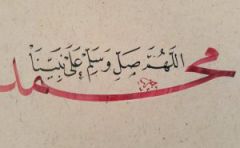 اللَّهُمَّ صَلِّ وَسَلِّمْ عَلَىٰ نَبِيِّنَا
محمد